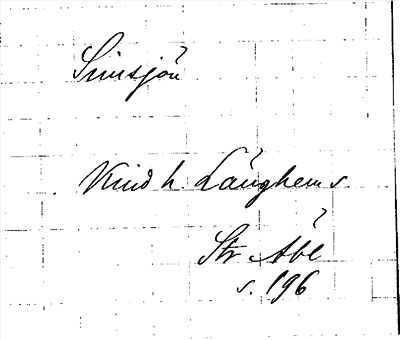 Simsjön
Kind h. Länghem s.
Str Åbl
s. 196